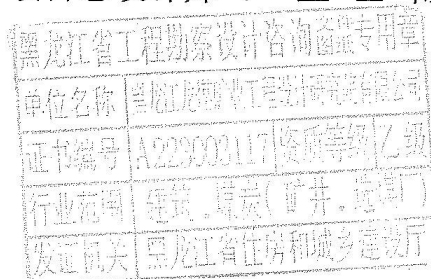 黑龙江省工程勘察设计咨询图纸专用章
单位名称 黑龙江龙煤矿业工程设计研究院有限公司
证书编号 A223003117 资质等级 乙级
行业范围 建筑、煤炭(矿井、选煤厂)
发证机关 黑龙江省住房和城乡建设厅